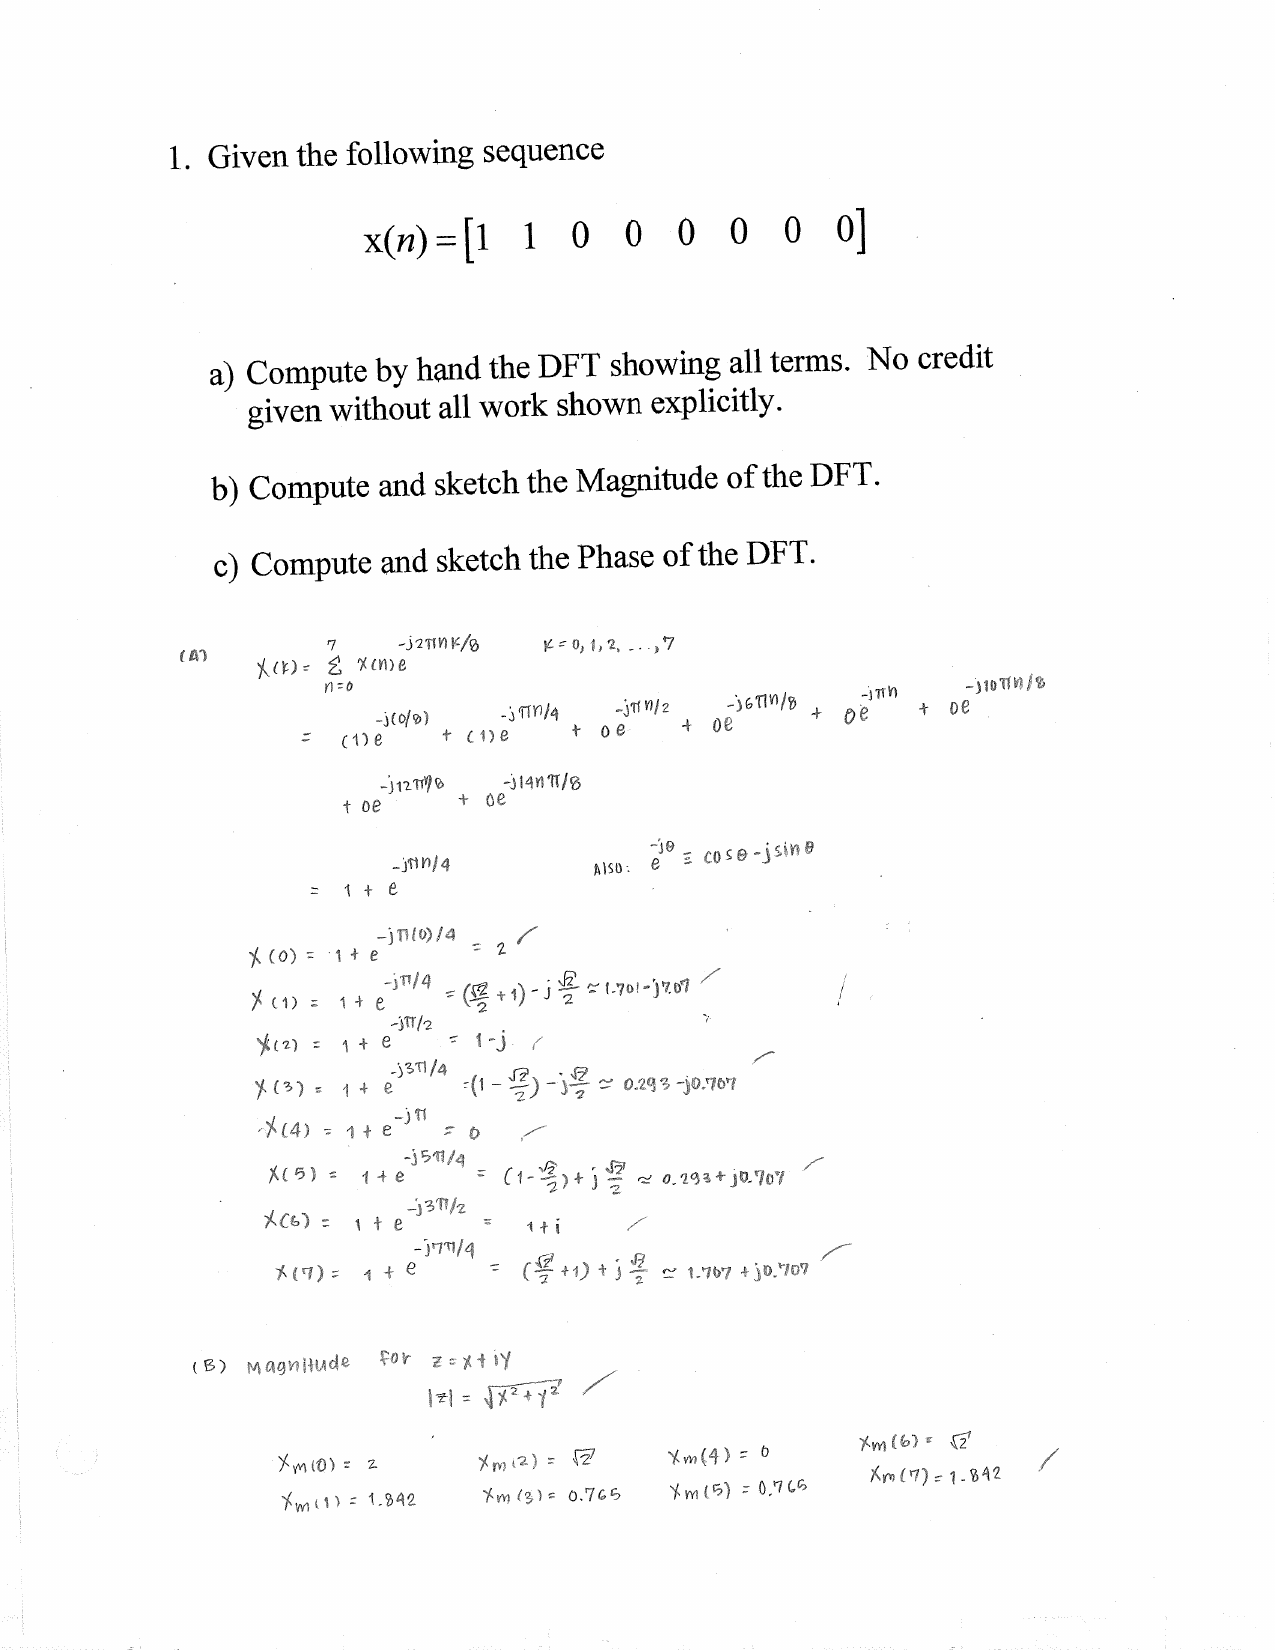 1. Given the following sequence
x(n)=[1 1 0 0 0 0 0 0]
a) Compute by hand the DFT showing all terms. No credit
given without all work shown explicitly.
b) Compute and sketch the Magnitude of the DFT.
c) Compute and sketch the Phase of the DFT.
(A) X(k) = Σ_{n=0}^{7} x(n)e^{-j2πnk/8} k = 0, 1, 2, ..., 7
= (1)e^{-j(0/8)} + (1)e^{-jπn/4} + 0e^{-jπn/2} + 0e^{-j6πn/8} + 0e^{-jπn} + 0e^{-j10πn/8}
+ 0e^{-j12πn/8} + 0e^{-j14nπ/8}
= 1 + e^{-jπn/4} Also: e^{-jθ} = cosθ - jsinθ
X(0) = 1 + e^{-jπ(0)/4} = 2
X(1) = 1 + e^{-jπ/4} = (√2/2 + 1) - j √2/2 ≃ 1.701 - j7.07
X(2) = 1 + e^{-jπ/2} = 1-j
X(3) = 1 + e^{-j3π/4} = (1 - √2/2) - j√2/2 ≃ 0.293 - j0.707
X(4) = 1 + e^{-jπ} = 0
X(5) = 1 + e^{-j5π/4} = (1 - √2/2) + j √2/2 ≃ 0.293 + j0.707
X(6) = 1 + e^{-j3π/2} = 1 + i
X(7) = 1 + e^{-j7π/4} = (√2/2 + 1) + j √2/2 ≃ 1.707 + j0.707
(B) Magnitude for z = x + iy
|z| = √(x² + y²)
Xm(0) = 2 Xm(2) = √2 Xm(4) = 0 Xm(6) = √2
Xm(1) = 1.842 Xm(3) = 0.765 Xm(5) = 0.765 Xm(7) = 1.842